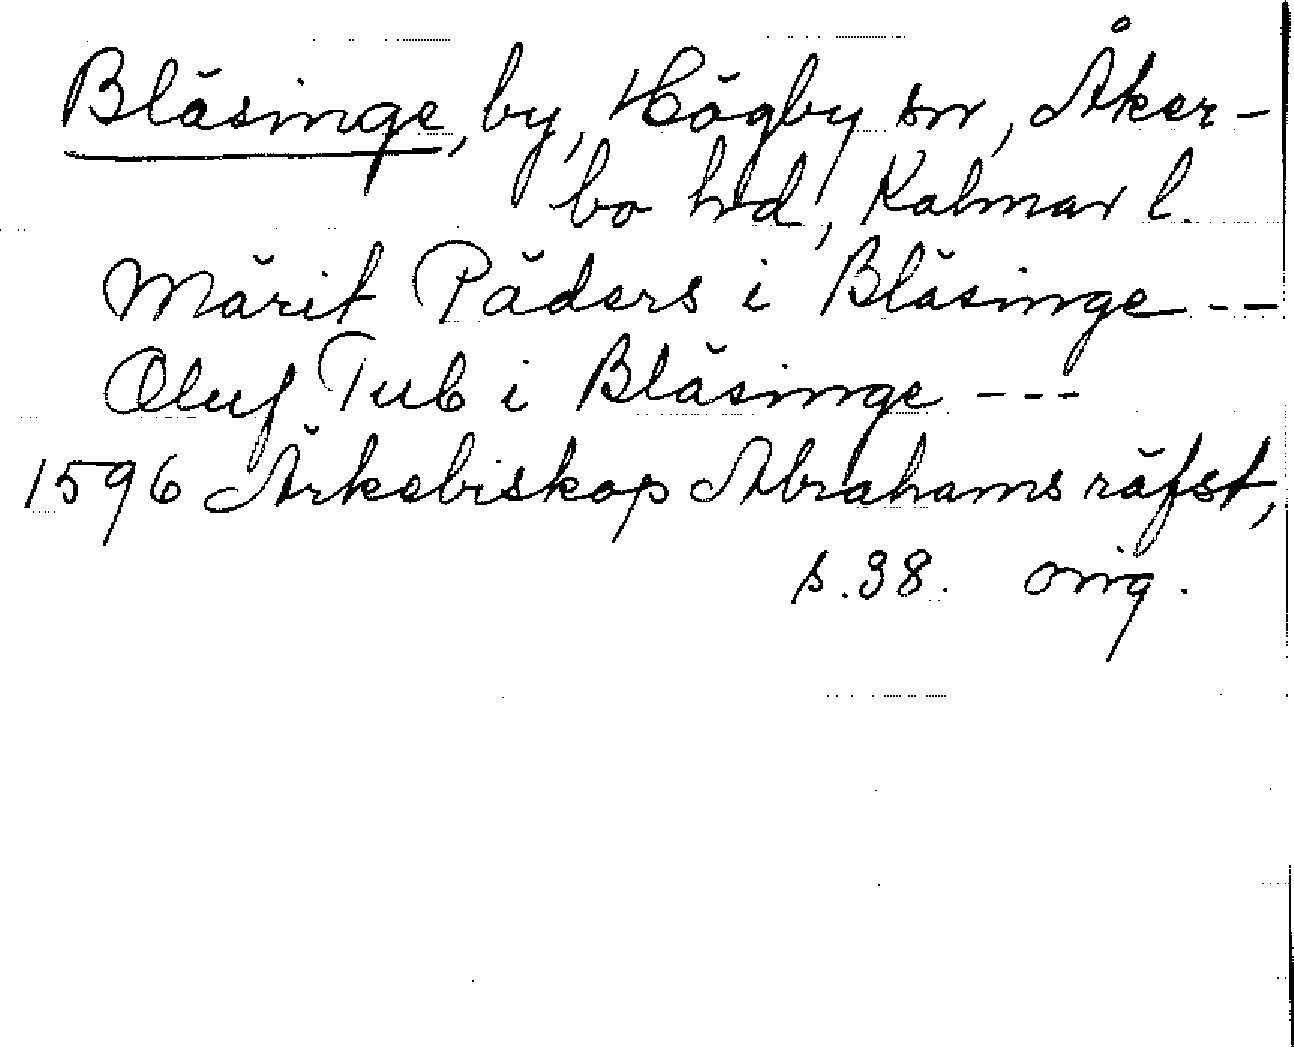 Bläsinge, by, Högby sn, Åker-
bo hd, Kalmar l.
Märit Päders i Bläsinge --
Oluf Tub i Bläsinge ---
1596 Ärkebiskop Abrahams räfst,
s. 38. orig.